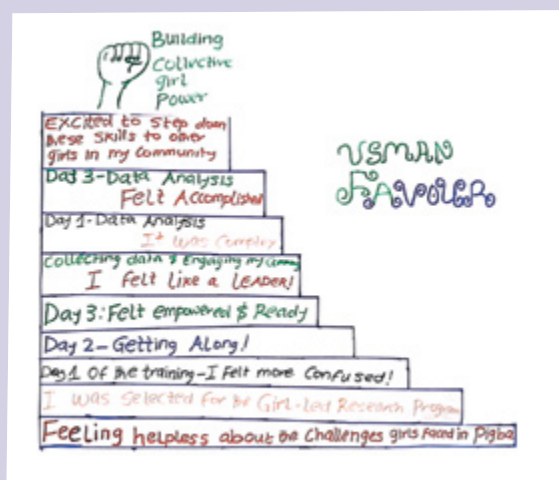 Building
Collective
girl
Power
Excited to Step down
these skills to other
girls in my community
Day 3-Data Analysis
Felt Accomplished
Day 1-Data Analysis
It was Complex
Collecting data & Engaging my
I felt like a LEADER!
Day 3: Felt empowered & Ready
Day 2-Getting Along!
Day 1 Of the training-I Felt more Confused!
I was selected for the Girl-Led Research Program
Feeling helpless about the Challenges girls faced in Pigba
USMAN
FAVOUR